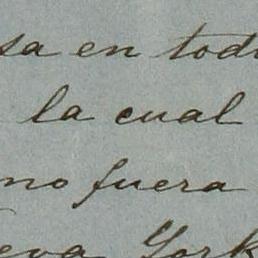 sa en tod
la cual
no fuera
eva York